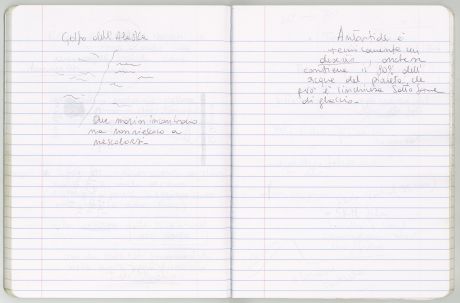 Golfo dell'Alaska
Due mari si incontrano
ma non riescono a
mescolarsi.
Antartide è
tecnicamente un
deserto anche se
contiene il 90% dell'
acqua del pianeta che
però è rinchiusa sotto forma
di ghiaccio.